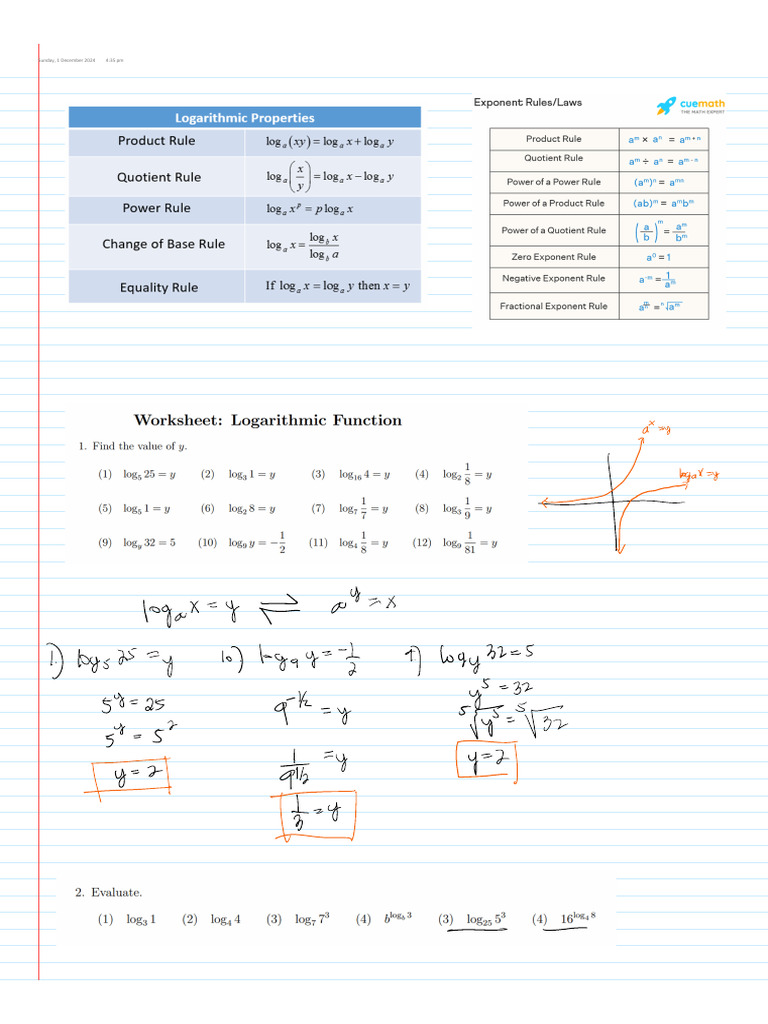 Sunday, 1 December 2024 4:35 pm
Logarithmic Properties
Product Rule log_a(xy) = log_a x + log_a y
Quotient Rule log_a(x/y) = log_a x − log_a y
Power Rule log_a x^p = p log_a x
Change of Base Rule log_a x = log_b x / log_b a
Equality Rule If log_a x = log_a y then x = y
Exponent Rules/Laws
cuemath
THE MATH EXPERT
Product Rule a^m × a^n = a^(m+n)
Quotient Rule a^m ÷ a^n = a^(m−n)
Power of a Power Rule (a^m)^n = a^(mn)
Power of a Product Rule (ab)^m = a^m b^m
Power of a Quotient Rule (a/b)^m = a^m/b^m
Zero Exponent Rule a^0 = 1
Negative Exponent Rule a^-m = 1/a^m
Fractional Exponent Rule a^(m/n) = ^n√a^m
Worksheet: Logarithmic Function
1. Find the value of y.
(1) log_5 25 = y (2) log_3 1 = y (3) log_16 4 = y (4) log_2 1/8 = y
(5) log_5 1 = y (6) log_2 8 = y (7) log_7 1/7 = y (8) log_3 1/9 = y
(9) log_y 32 = 5 (10) log_9 y = −1/2 (11) log_4 1/8 = y (12) log_9 1/81 = y
a^x = y
log_a x = y
log_a x = y ⇌ a^y = x
1.) log_5 25 = y
5^y = 25
5^y = 5^2
y = 2
10) log_9 y = -1/2
9^-1/2 = y
1/9^1/2 = y
1/3 = y
9) log_y 32 = 5
y^5 = 32
^5√y^5 = ^5√32
y = 2
2. Evaluate.
(1) log_3 1 (2) log_4 4 (3) log_7 7^3 (4) b^(log_b 3) (3) log_25 5^3 (4) 16^(log_4 8)